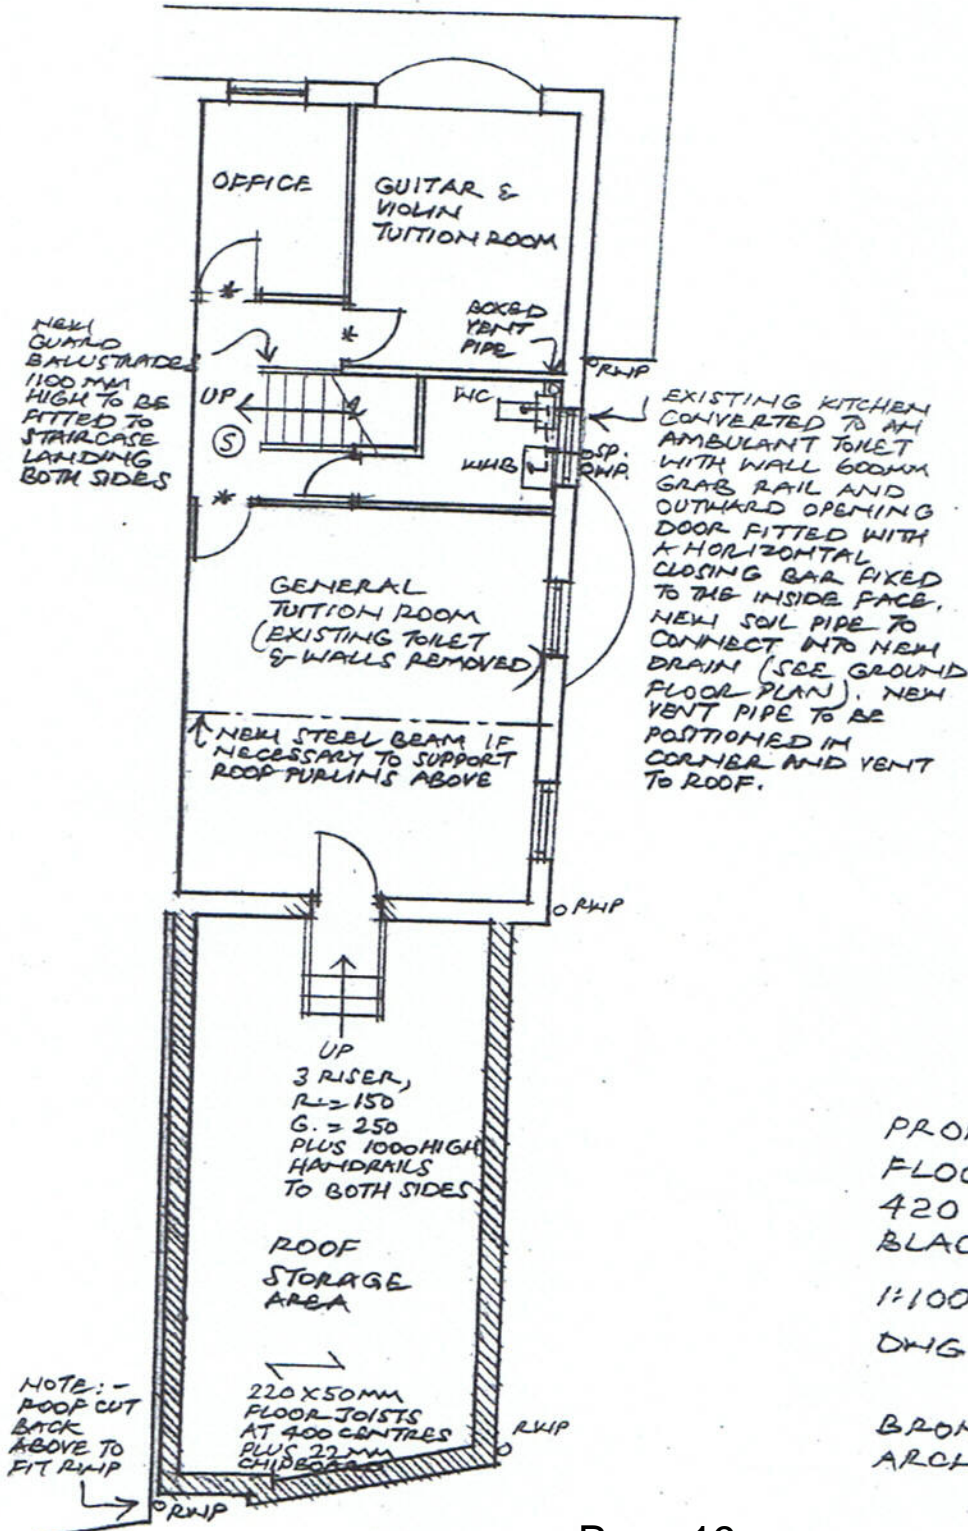 OFFICE
GUITAR &
VIOLIN
TUITION ROOM
BOXED
VENT
PIPE
NEW
GUARD
BALUSTRADES
1100 MM
HIGH TO BE
FITTED TO
STAIRCASE
LANDING
BOTH SIDES
UP
S
WC
WHB
RWP
SP.
WP.
EXISTING KITCHEN
CONVERTED TO AN
AMBULANT TOILET
WITH WALL 600MM
GRAB RAIL AND
OUTWARD OPENING
DOOR FITTED WITH
A HORIZONTAL
CLOSING BAR FIXED
TO THE INSIDE FACE.
NEW SOIL PIPE TO
CONNECT INTO NEW
DRAIN (SEE GROUND
FLOOR PLAN). NEW
VENT PIPE TO BE
POSITIONED IN
CORNER AND VENT
TO ROOF.
GENERAL
TUITION ROOM
(EXISTING TOILET
& WALLS REMOVED)
NEW STEEL BEAM IF
NECESSARY TO SUPPORT
ROOF PURLINS ABOVE
RWP
UP
3 RISER,
R. = 150
G. = 250
PLUS 1000 HIGH
HANDRAILS
TO BOTH SIDES
ROOF
STORAGE
AREA
220 X 50MM
FLOOR JOISTS
AT 400 CENTRES
PLUS 22MM
CHIPBOARD
RWP
NOTE:-
ROOF CUT
BACK
ABOVE TO
FIT RWP
RWP
FLOO
420
BLAC
1:100
DWG
BRON
ARCH